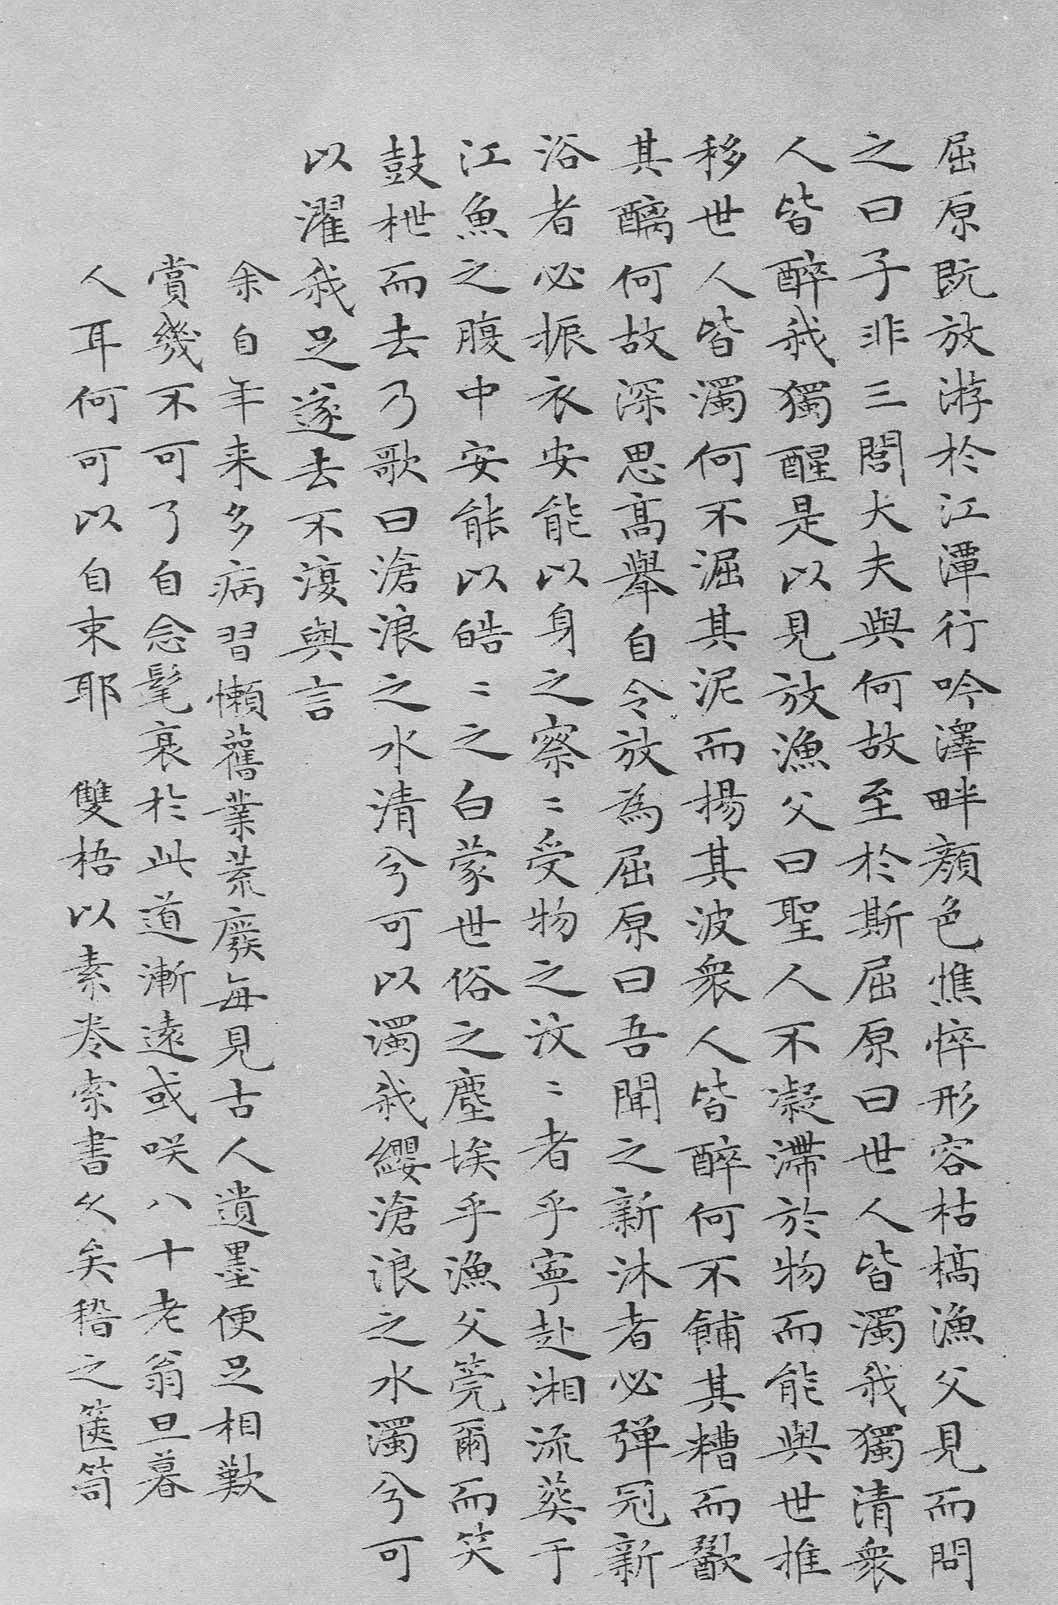 屈原既放游於江潭行吟澤畔顏色憔悴形容枯槁漁父見而問
之曰子非三閭大夫與何故至於斯屈原曰世人皆濁我獨清衆
人皆醉我獨醒是以見放漁父曰聖人不凝滯於物而能與世推
移世人皆濁何不淈其泥而揚其波衆人皆醉何不餔其糟而歠
其醨何故深思高舉自令放為屈原曰吾聞之新沐者必彈冠新
浴者必振衣安能以身之察〻受物之汶〻者乎寧赴湘流葬于
江魚之腹中安能以皓〻之白蒙世俗之塵埃乎漁父莞爾而笑
鼓枻而去乃歌曰滄浪之水清兮可以濯我纓滄浪之水濁兮可
以濯我足遂去不復與言
余自年来多病習懶舊業荒廢每見古人遺墨便足相歎
賞幾不可了自念髦衰於此道漸遠或咲八十老翁旦暮
人耳何可以自束耶 雙梧以素卷索書久矣稽之篋笥